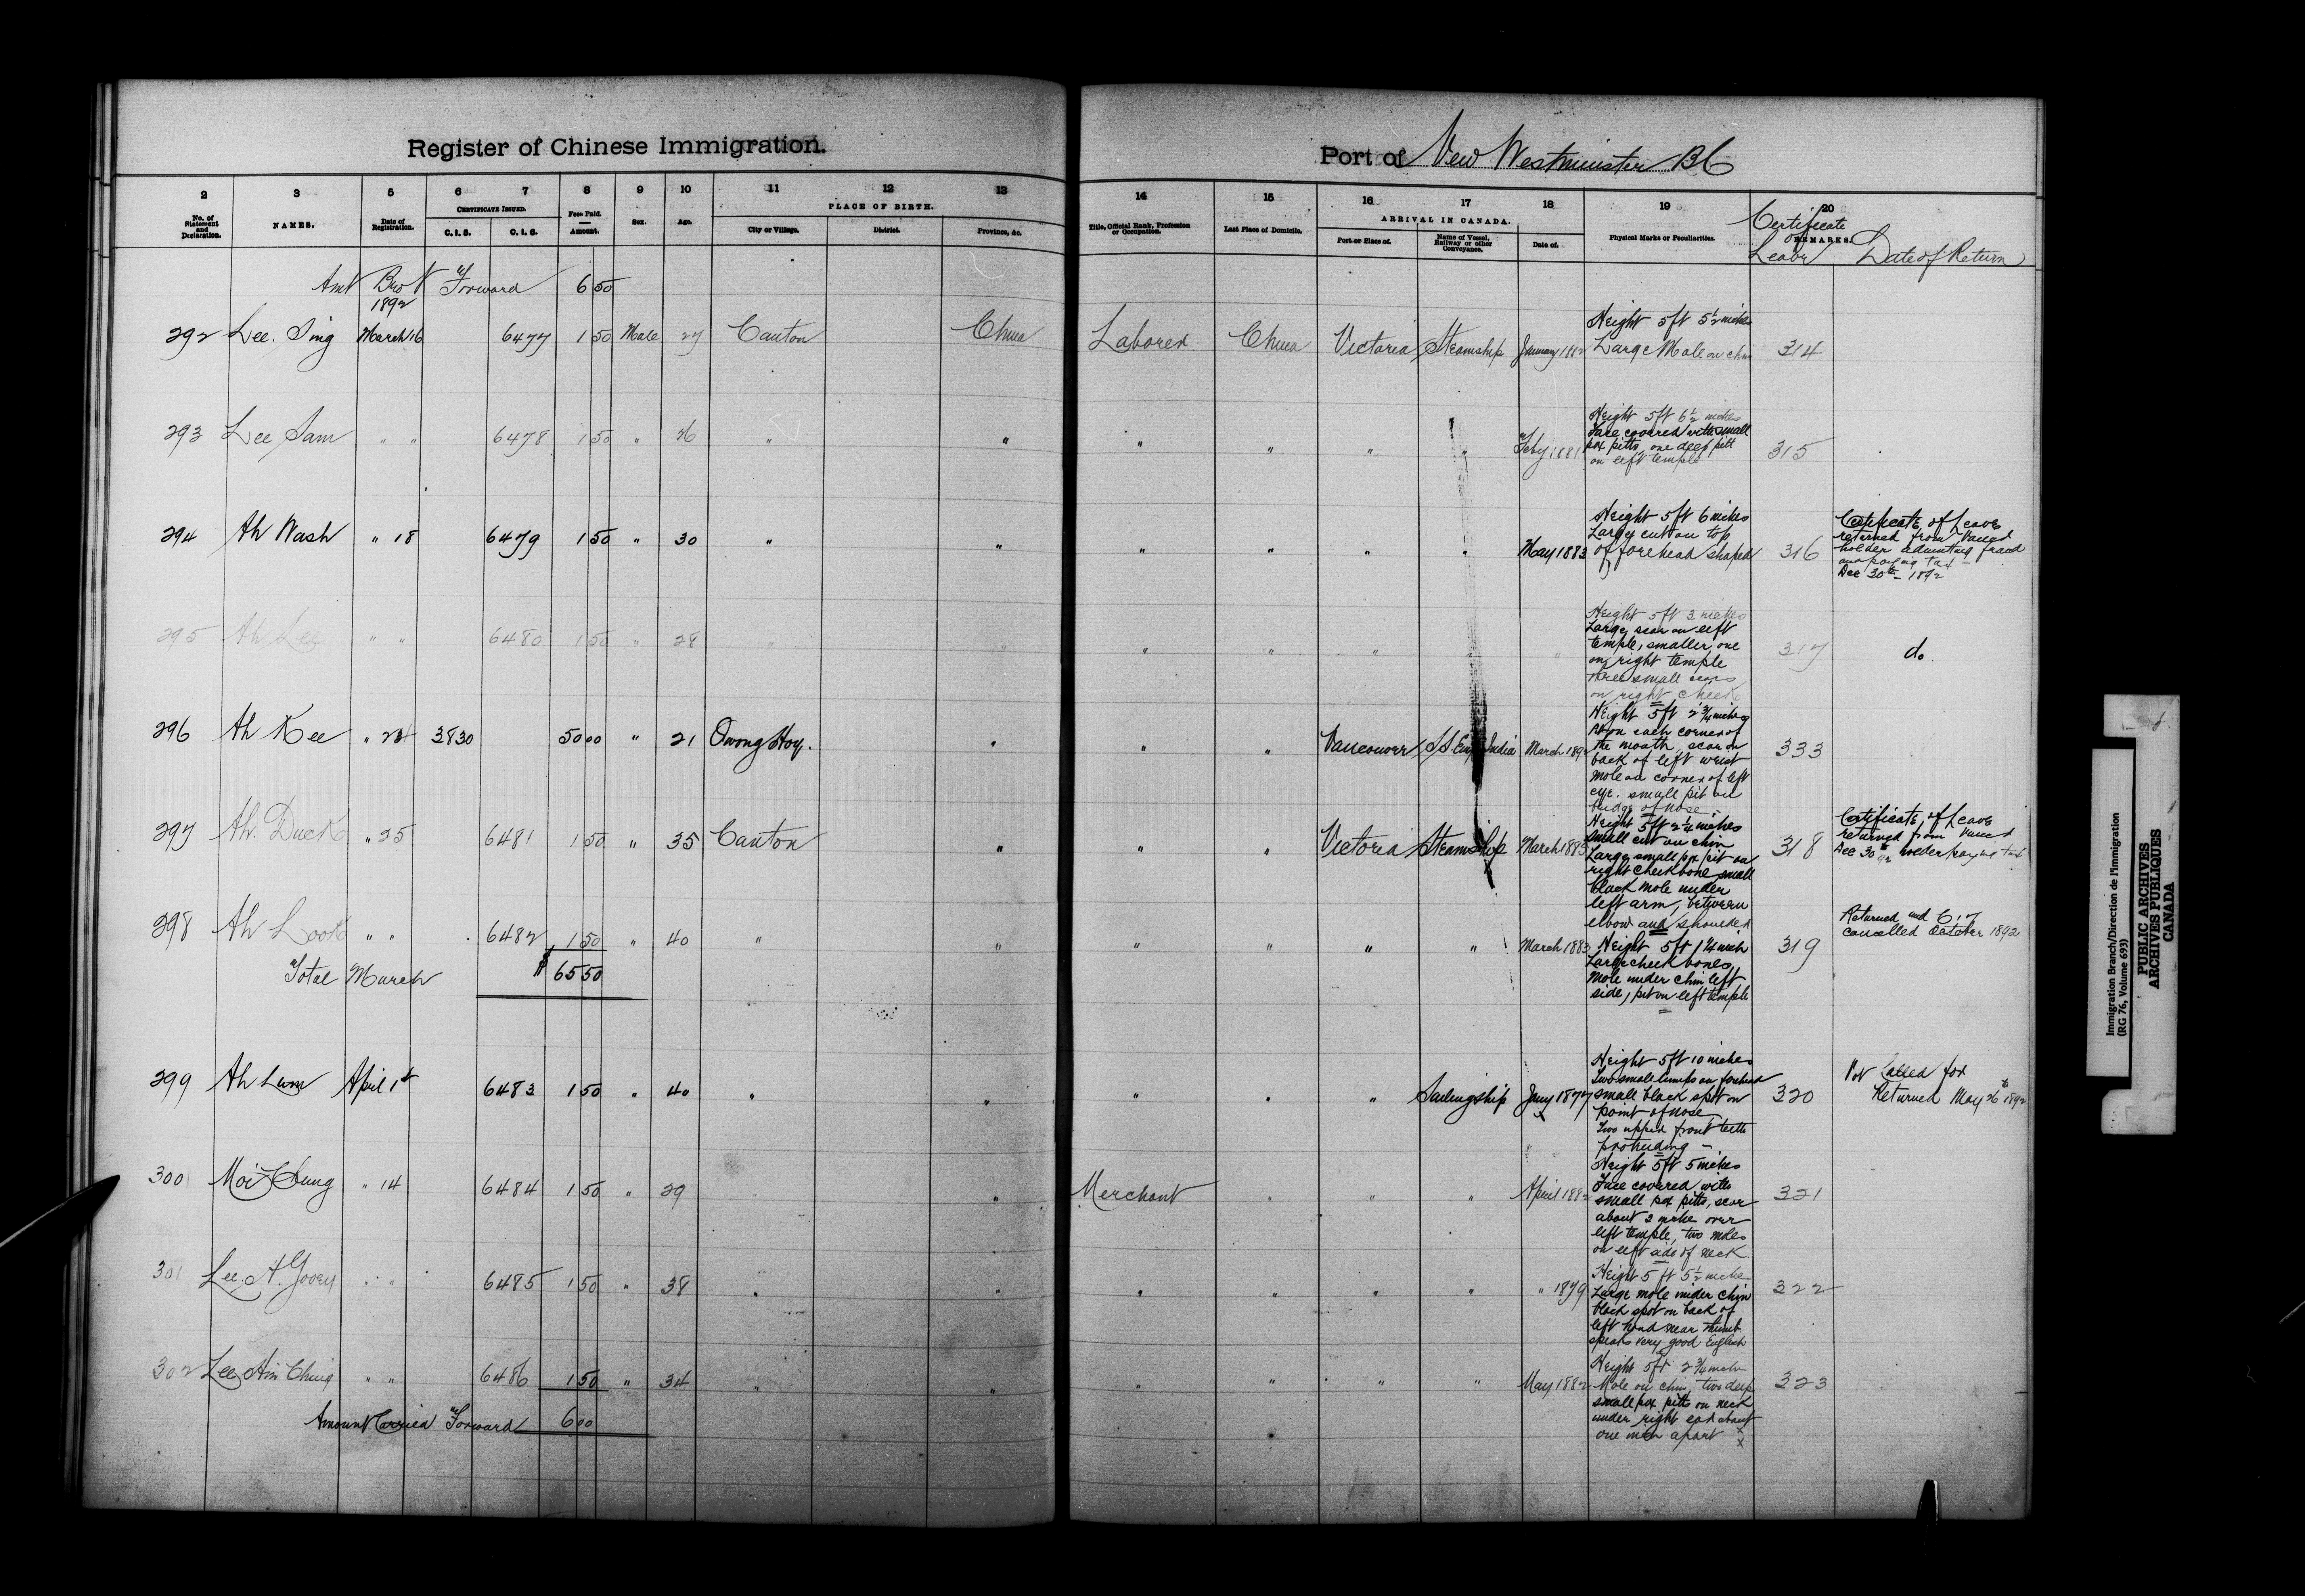 Register of Chinese Immigration.
Port of New Westminster BC
2 3 5 6 7 8 9 10 11 12 13
No. of Statement and Declaration. NAMES. Date of Registration. CERTIFICATE ISSUED. C.I.5. C.I.6. Fees Paid. Amount. Sex. Age. PLACE OF BIRTH. City or Village. District. Province, &c.
14 15 16 17 18 19 20
Title, Official Rank, Profession or Occupation. Last Place of Domicile. ARRIVAL IN CANADA. Port or Place of. Name of Vessel, Railway or other Conveyance. Date of. Physical Marks or Peculiarities. REMARKS.
Certificate of Leave Date of Return
Amt Brot Forward 6 50
1892
292 Lee Sing March 16 6477 1 50 Male 27 Canton China Laborer China Victoria Steamship January 1882
Height 5ft 5½ inches
Large Mole on chin
314
293 Lee Sam " " 6478 1 50 " 26 " " " " " " Feby 1881
Height 5ft 6½ inches
Face covered with small
pox pitts, one deep pitt
on left temple
315
294 Ah Wash " 18 6479 1 50 " 30 " " " " " " May 1883
Height 5ft 6 inches
Large cut on top
of forehead shaped
316
Certificate of Leave
returned from Vancr
holder admitting fraud
and paying tax –
Dec 30th – 1892
295 Ah Lee " " 6480 1 50 " 28 " " " " " "
Height 5ft 3 inches
Large scar on left
temple, smaller one
on right temple
three small scars
on right cheek
317 do
296 Ah Kee " 24 3830 50 00 " 21 Owong Hoy. " " " Vancouver SS Emp India March 1892
Height 5ft 2¾ inches
Pit on each corner of
the mouth, scar on
back of left wrist
Mole on corner of left
eye. small pit on
bridge of nose
333
297 Ah. Duck " 25 6481 1 50 " 35 Canton " " " Victoria Steamship March 1885
Height 5ft 2¼ inches
small cut on chin
Large small pox pit on
right cheek bone small
black mole under
left arm, between
elbow and shoulder
318
Certificate of Leave
returned from Vancr
Dec 30th 92 holder paying tax
298 Ah Look " " 6482 1 50 " 40 " " " " " " March 1883
Height 5ft 1¼ inch
Large cheek bones,
Mole under chin left
side, pit on left temple
319
Returned and C.I.7
cancelled October 1892
Total March $ 65 50
299 Ah Lum April 1st 6483 1 50 " 40 " " " " " Sailingship Jany 1877
Height 5ft 10 inches
Two small lumps on forehead
small black spot on
point of nose
Two upper front teeth
protruding –
320
Not Called for
Returned May 26th 1892
300 Moi Chung " 14 6484 1 50 " 29 " " Merchant " " " April 1882
Height 5ft 5 inches
Face covered with
small pox pitts, scar
about 2 inches over
left temple, two moles
on left side of neck
321
301 Lee A. Gooey " " 6485 1 50 " 38 " " " " " " " 1879
Height 5 ft 5½ inches
Large mole under chin
black spot on back of
left hand near thumb
speaks very good English
322
302 Lee Him Ching " " 6486 1 50 " 34 " " " " " " May 1882
Height 5ft 2¾ inch
Mole on chin, two deep
small pox pitts on neck
under right ear about
one inch apart
323
Amount Carried Forward 6 00
Immigration Branch/Direction de l'immigration
(RG 76, Volume 693)
PUBLIC ARCHIVES
ARCHIVES PUBLIQUES
CANADA